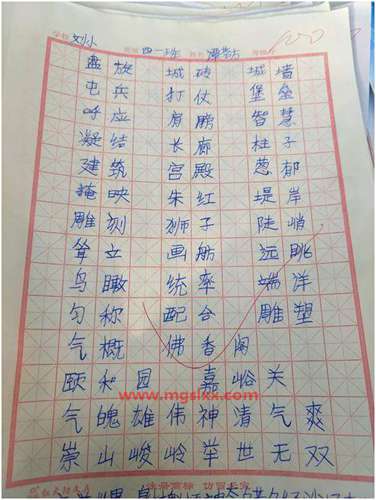 学校 刘小 班级 四一班 姓名
盘旋 城砖 城墙
屯兵 打仗 堡垒
呼应 肩膀 智慧
凝结 长廊 柱子
建筑 宫殿 葱郁
掩映 朱红 堤岸
雕刻 狮子 陡峭
耸立 画舫 远眺
鸟瞰 统率 端洋
匀称 配合 雕塑
气概 佛香阁
颐和园 嘉峪关
www.mgslxx.com
气魄雄伟神清气爽
崇山峻岭举世无双